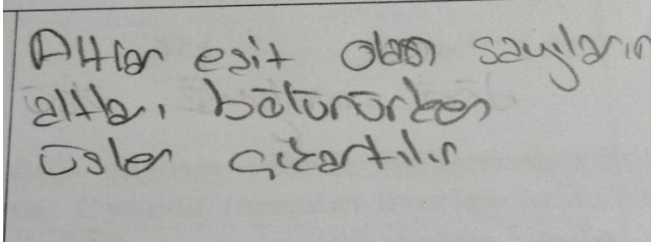 Altları eşit olan sayıların
altları, bölünürken
üsler çıkartılır